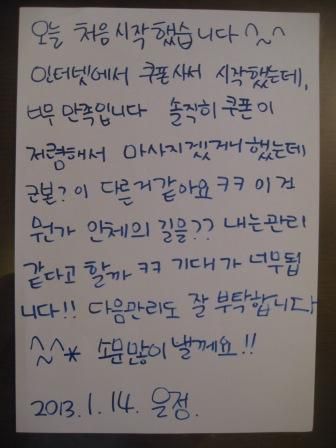 오늘 처음 시작했습니다 ^~^
인터넷에서 쿠폰사서 시작했는데,
너무 만족입니다 솔직히 쿠폰이
저렴해서 마사지겠거니 했는데
근본? 이 다른거같아요 ㅋㅋ 이건
뭔가 인체의 길을?? 내는관리
같다고 할까 ㅋㅋ 기대가 너무됩
니다!! 다음관리도 잘 부탁합니다
^~^* 소문많이 낼께요!!
2013.1.14. 은정.